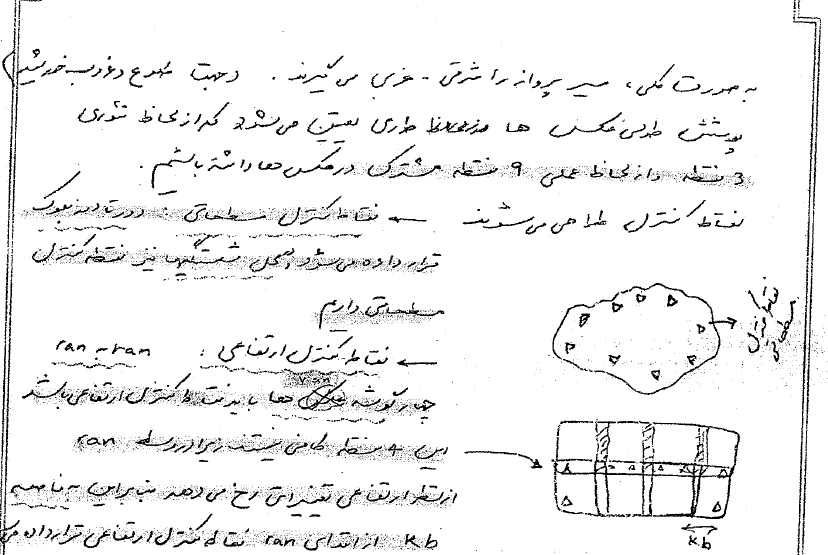 به صورت کلی، مسیر پرواز را شرقی - غربی می گیرند. (جهت طلوع و غروب خورشید)
پوشش طولی عکس ها طوری تعیین می شود که از لحاظ تئوری
3 نقطه و از لحاظ عملی 9 نقطه مشترک در عکس ها داشته باشیم.
نقاط کنترل طراحی می شوند ← نقاط کنترل مسطحاتی : دور تا دور بلوک
قرار داده می شود و محل شکستگیها نیز نقطه کنترل
مسطحاتی داریم
← نقاط کنترل ارتفاعی : ran - ran
چهار گوشه ها باید نقاط کنترل ارتفاعی باشد
این 4 نقطه کافی نیستند زیرا در وسط ran
از نظر ارتفاعی تغییراتی رخ می دهد بنابراین به فاصله
kb از ابتدای ran نقاط کنترل ارتفاعی قرار داده می
نقاط کنترل
مسطحاتی
kb